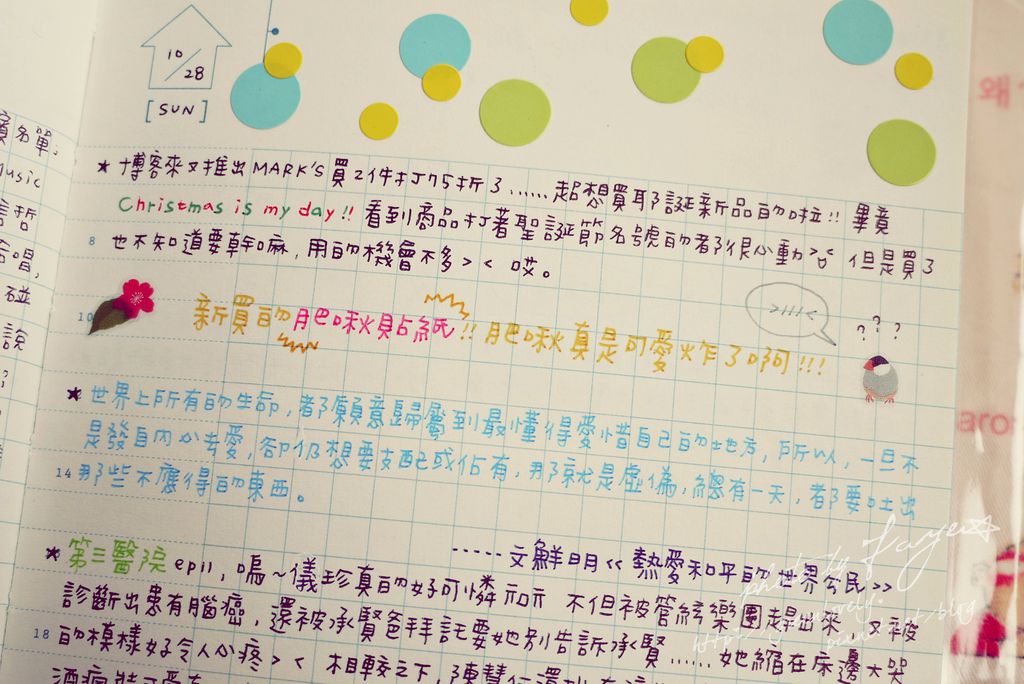 10/28
[SUN]
★ 博客來又推出MARK'S買2件打75折了......超想買耶誕新品的啦!! 畢竟
Christmas is my day!! 看到商品打著聖誕節名號的都很心動>"< 但是買了
8 也不知道要幹嘛,用的機會不多>< 哎。
>////<
? ? ?
10 新買的肥啾貼紙!! 肥啾真是可愛炸了啊!!!
★ 世界上所有的生命,都願意歸屬到最懂得愛惜自己的地方,所以,一旦不
是發自內心去愛,卻仍想要支配或佔有,那就是虛偽,總有一天,都要吐出
14 那些不應得的東西。
-----文鮮明<<熱愛和平的世界公民>>
★ 第三醫院 ep11,嗚~儀珍真的好可憐 不但被管絃樂團趕出來 又被
診斷出患有腦癌,還被承賢爸拜託要她別告訴承賢......她縮在床邊大哭
18 的模樣好令人心疼>< 相較之下,陳慧仁還
名單,
usic
哲
唱,
碰
說
?
왜
aro
photo by Faye☆